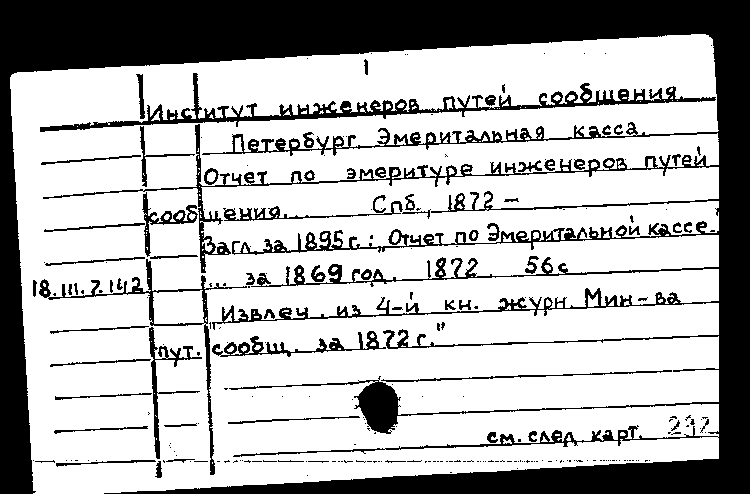 Институт инженеров путей сообщения.
Петербург. Эмеритальная касса.
Отчет по эмеритуре инженеров путей
сообщения... Спб., 1872 —
Загл. за 1895 г.: „Отчет по Эмеритальной кассе."
18.III.7.142 ... за 1869 год. 1872. 56 с
„Извлеч. из 4-й кн. журн. Мин-ва
пут. сообщ. за 1872 г."
см. след. карт. 292